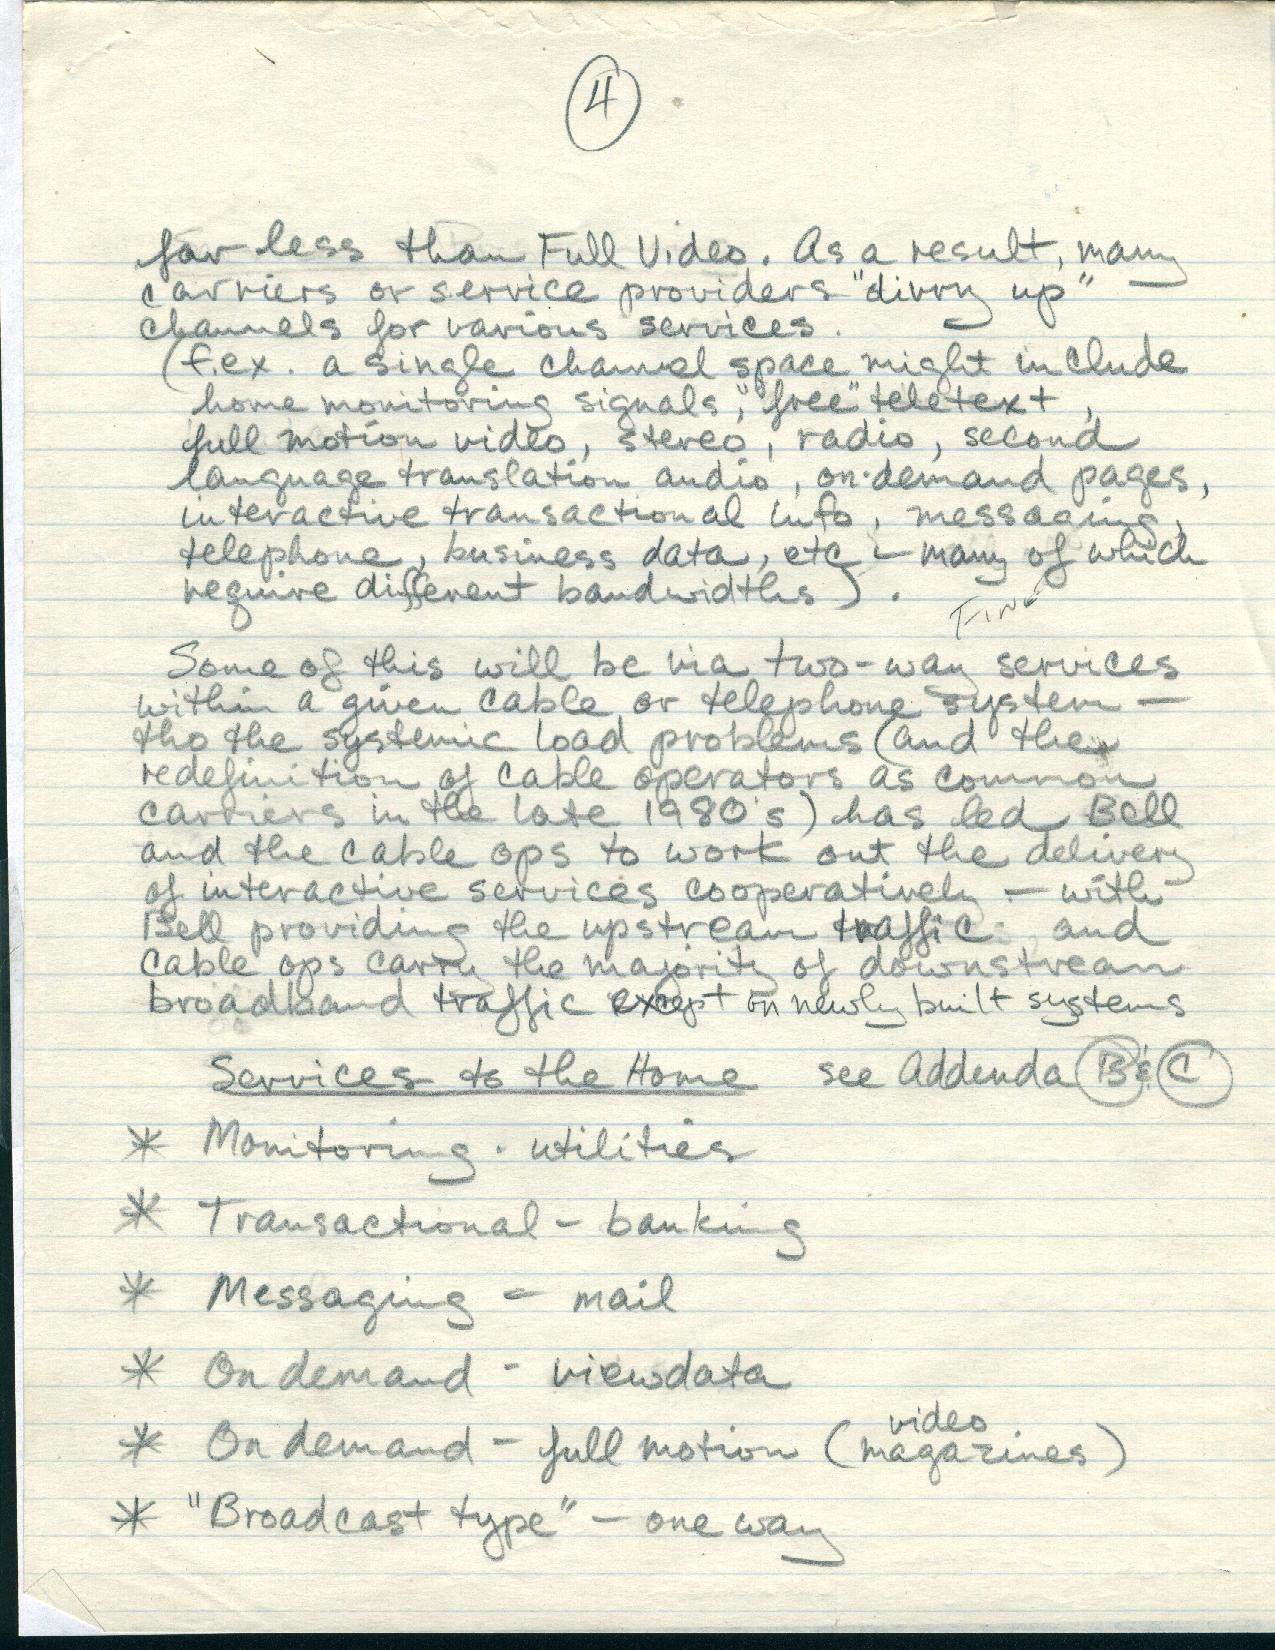 4
far less than Full Video. As a result, many
carriers or service providers "divvy up"
channels for various services.
(f.ex. a single channel space might include
home monitoring signals, "free" teletext,
full motion video, stereo, radio, second
language translation audio, on-demand pages,
interactive transactional info, messaging,
telephone, business data, etc - many of which
require different bandwidths).
Fine
Some of this will be via two-way services
within a given cable or telephone system -
tho the systemic load problems (and the
redefinition of cable operators as common
carriers in the late 1980's) has led Bell
and the cable ops to work out the delivery
of interactive services cooperatively - with
Bell providing the upstream traffic and
cable ops carry the majority of downstream
broadband traffic except on newly built systems
Services to the Home see Addenda B & C
* Monitoring - utilities
* Transactional - banking
* Messaging - mail
* On demand - viewdata
* On demand - full motion (video magazines)
* "Broadcast type" - one way